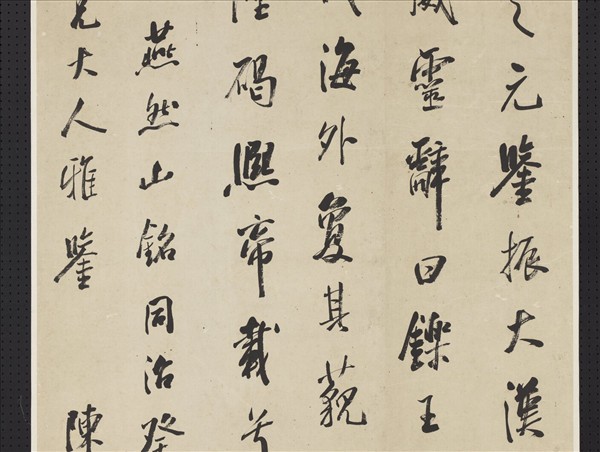 元鑒振大漢
威靈辭曰鑠王
海外夐其藐
碣熙帝載兮
燕然山銘同治癸
兄大人雅鑒 陳